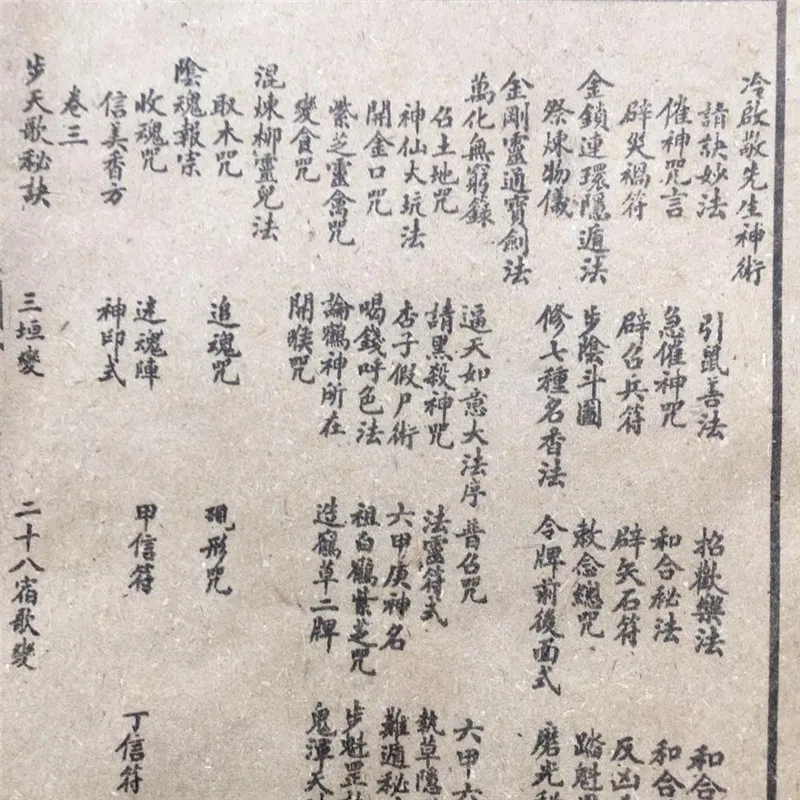 冷啟敬先生神術
請訣妙法 引鼠善法 招歡樂法 和合
催神咒言 急催神咒 和合秘法 和合
辟災禍符 辟召兵符 辟矢石符 反凶
金鎖連環隱遁法 步陰斗圖 敕念總咒 踏魁
祭煉物儀 修七種名香法 令牌前後面式 磨光
金剛靈通寶劍法
萬化無窮籙 通天如意大法序 普召咒 六甲六
召土地咒 請黑殺神咒 法靈符式 執草隱
神仙大坑法 杏子假尸術 六甲庚神名 難遁秘
開金口咒 喝錢呼色法 祖白鶴紫芝咒 步魁罡
紫芝靈禽咒 論鶴神所在 造鶴草二牌 鬼渾天
變食咒 開喉咒
混煉柳靈兒法
取木咒 追魂咒 現形咒
陰魂報宗
收魂咒 迷魂陣 甲信符 丁信符
信美香方 神印式
卷三
步天歌秘訣 三垣變 二十八宿歌變